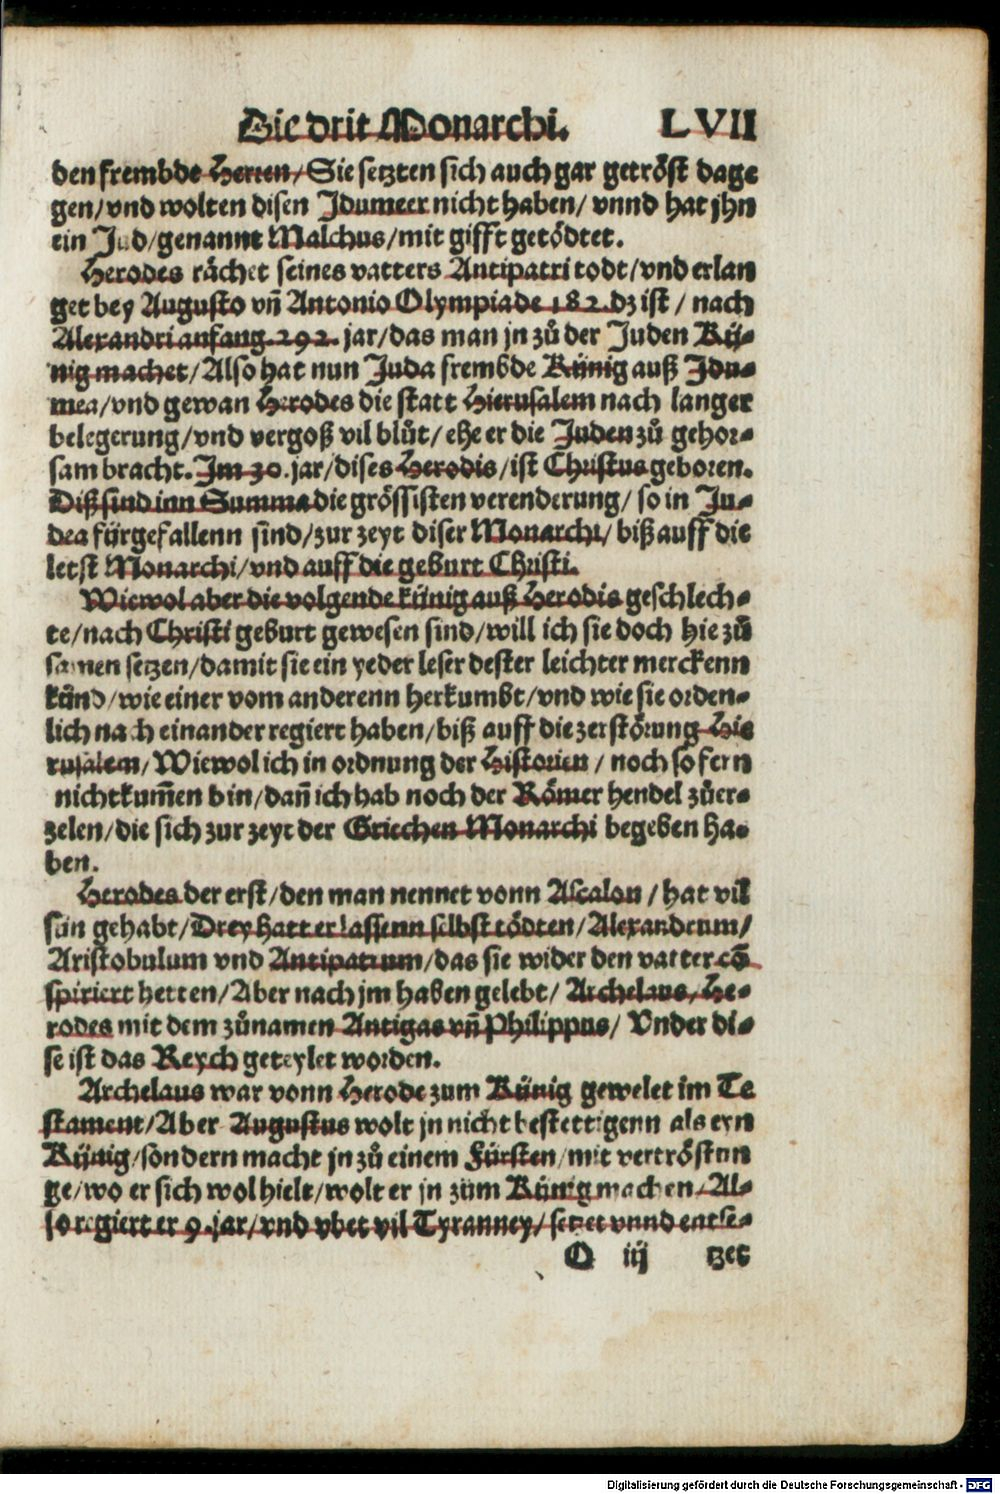 Die drit Monarchi. LVII
den frembde Herren/Sie setzten sich auch gar getröst dage
gen/vnd wolten disen Idumeer nicht haben/ vnnd hat jhn
ein Jud/genannt Malchus/mit gifft getödtet.
Herodes rächet seines vatters Antipatri todt/vnd erlan
get bey Augusto vñ Antonio Olympiade 182. dz ist / nach
Alexandri anfang. 292. jar/das man jn zů der Juden Kü-
nig machet/Also hat nun Juda frembde Künig auß Idu-
mea/vnd gewan Herodes die statt Hierusalem nach langer
belegerung/vnd vergoß vil blůt/ ehe er die Juden zů gehor-
sam bracht. Im 30. jar/dises Herodis/ist Christus geboren.
Diß sind inn Summa die grössisten verenderung/ so in Ju-
dea fürgefallenn sind/zur zeyt diser Monarchi/ biß auff die
letst Monarchi/vnd auff die geburt Christi.
Wiewol aber die volgende künig auß Herodis geschlech-
te/nach Christi geburt gewesen sind/will ich sie doch hie zů
samen setzen/damit sie ein yeder leser dester leichter merckenn
künd/wie einer vom anderenn herkumbt/vnd wie sie orden-
lich nach einander regiert haben/biß auff die zerstörung Hie
rusalem/Wiewol ich in ordnung der Historien / noch so fern
nicht kum̃en bin/dañ ich hab noch der Römer hendel zůer-
zelen/die sich zur zeyt der Griechen Monarchi begeben ha-
ben.
Herodes der erst/den man nennet vonn Ascalon / hat vil
sün gehabt/Drey hatt er lassenn selbst tödten/Alexandrum/
Aristobulum vnd Antipatrum/das sie wider den vatter cō
spiriert hetten/Aber nach jm haben gelebt/ Archelaus/He-
rodes mit dem zůnamen Antipas vñ Philippus/ Vnder di-
se ist das Reych geteylet worden.
Archelaus war vonn Herode zum Künig gewelet im Te
stament/Aber Augustus wolt jn nicht bestettigenn als eyn
Künig/sondern macht jn zů einem Fürsten/mit vertröstun
ge/wo er sich wol hielt/wolt er jn zům Künig machen/Al-
so regiert er 9. jar/vnd vbet vil Tyranney/setzet vnnd entse-
O iij tzet
Digitalisierung gefördert durch die Deutsche Forschungsgemeinschaft - DFG